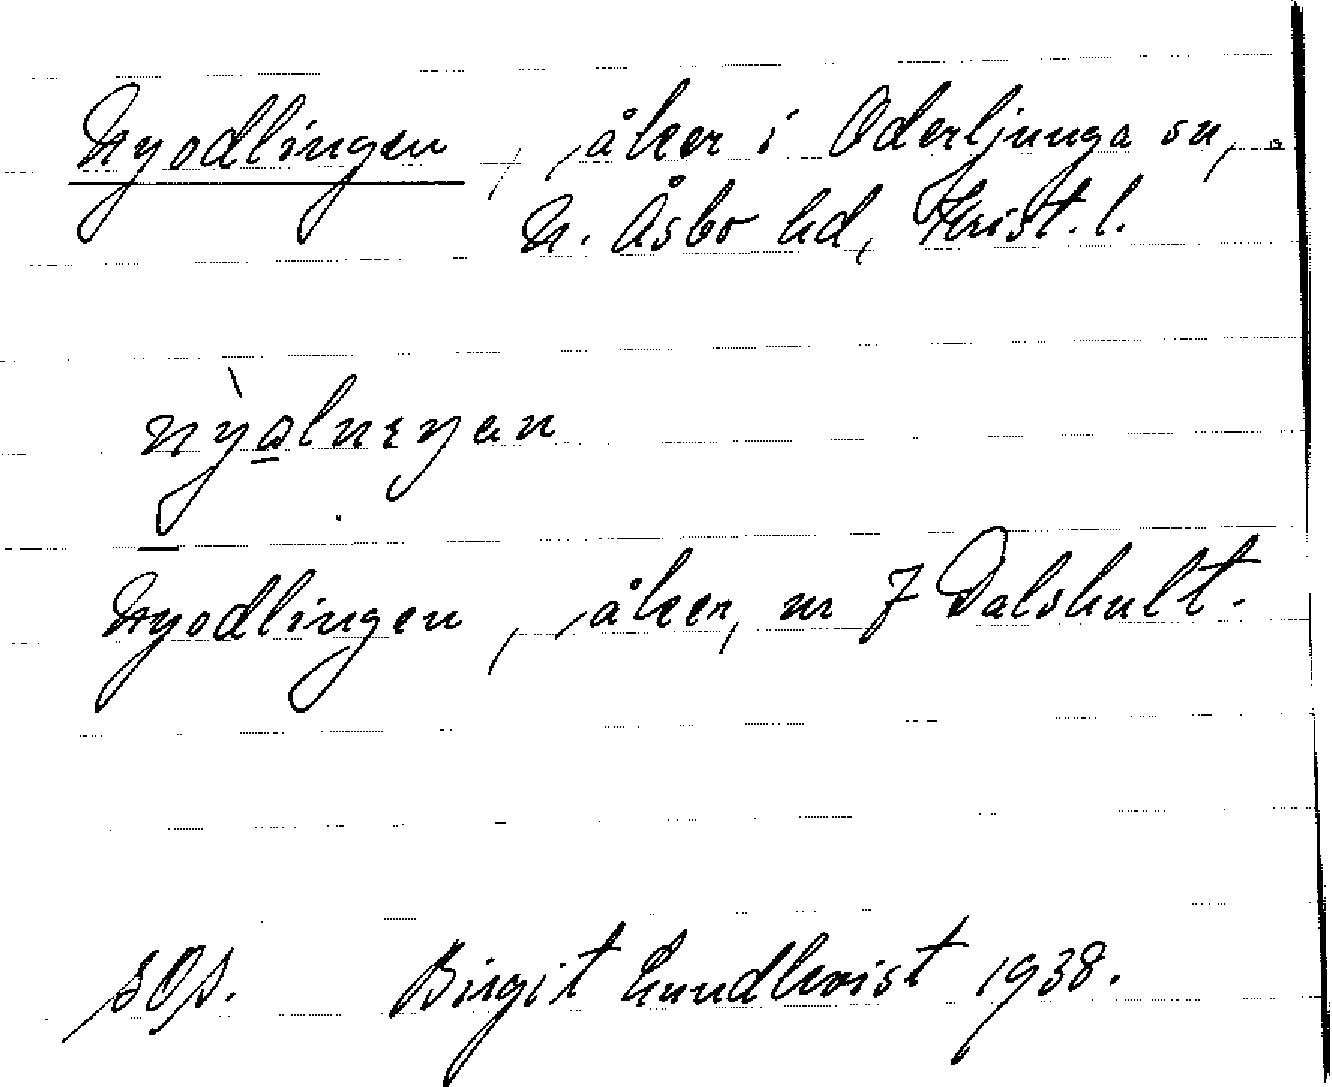 Nyodlingen, åker i Oderljunga sn,
N. Åsbo hd, Krist. l.
nỳalneŋan
Nyodlingen, åker, nr 7 Dalshult.
Birgit Lundkvist 1938.